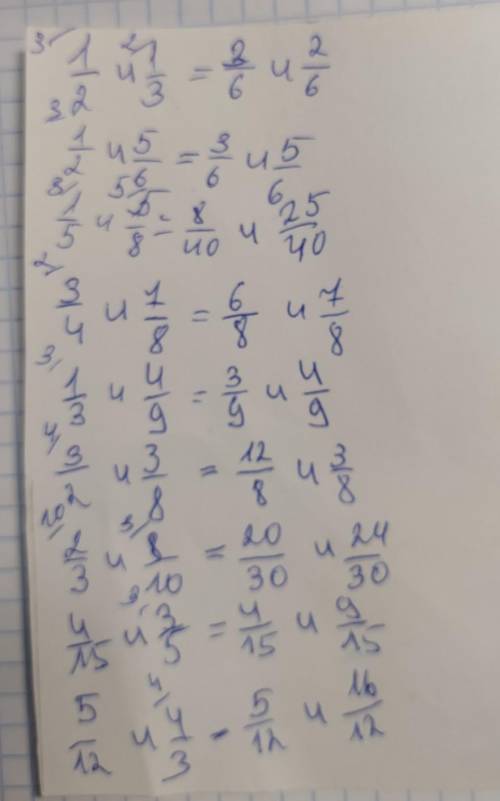 3/ 1/2 и 2/ 1/3 = 2/6 и 2/6
3 1/2 и 5/6 = 3/6 и 5/6
8/ 1/5 и 5/ 5/8 = 8/40 и 25/40
2/ 3/4 и 7/8 = 6/8 и 7/8
3/ 1/3 и 4/9 = 3/9 и 4/9
4/ 3/2 и 3/8 = 12/8 и 3/8
10/ 2/3 и 3/ 8/10 = 20/30 и 24/30
4/15 и 3/ 3/5 = 4/15 и 9/15
5/12 и 4/ 4/3 - 5/12 и 16/12